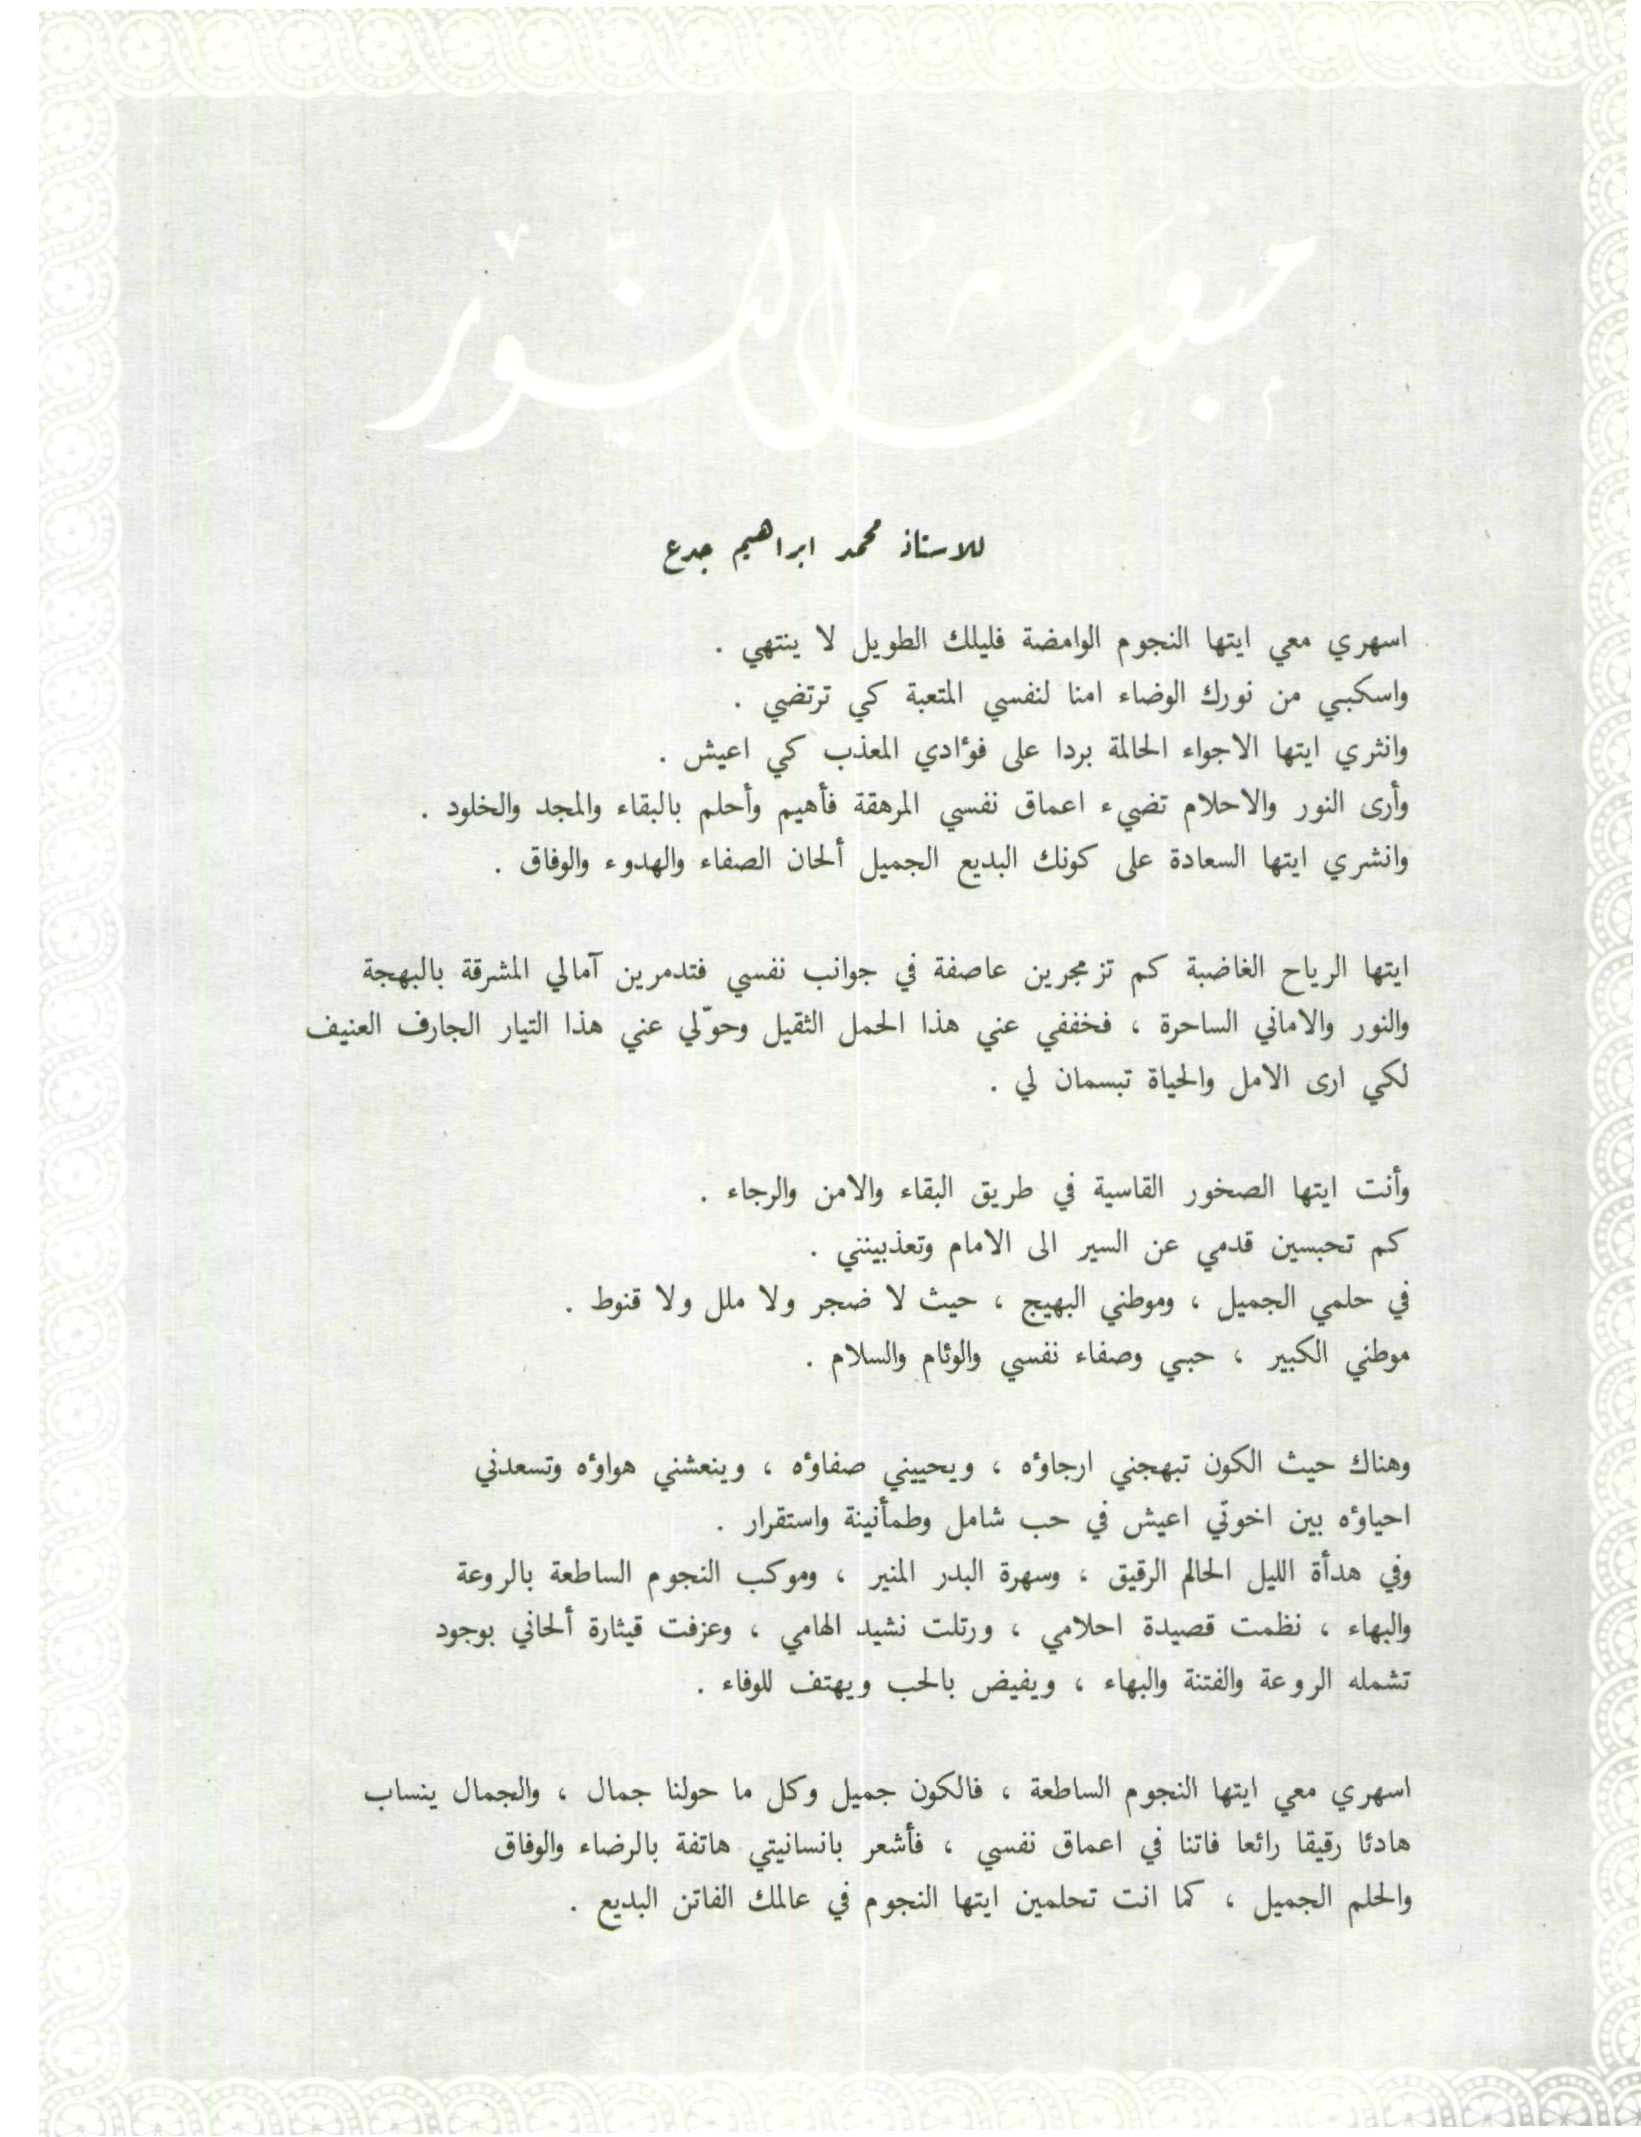 للاستاذ محمد ابراهيم جدع
اسهري معي ايتها النجوم الوامضة فليلك الطويل لا ينتهي .
واسكبي من نورك الوضاء امنا لنفسي المتعبة كي ترتضي .
وانثري ايتها الاجواء الحالمة بردا على فؤادي المعذب كي اعيش .
وأرى النور والاحلام تضيء اعماق نفسي المرهقة فأهيم وأحلم بالبقاء والمجد والخلود .
وانشري ايتها السعادة على كونك البديع الجميل ألحان الصفاء والهدوء والوفاق .
ايتها الرياح الغاضبة كم تزمجرين عاصفة في جوانب نفسي فتدمرين آمالي المشرقة بالبهجة
والنور والاماني الساحرة ، فخففي عني هذا الحمل الثقيل وحوّلي عني هذا التيار الجارف العنيف
لكي ارى الامل والحياة تبسمان لي .
وأنت ايتها الصخور القاسية في طريق البقاء والامن والرجاء .
كم تحبسين قدمي عن السير الى الامام وتعذبينني .
في حلمي الجميل ، وموطني البهيج ، حيث لا ضجر ولا ملل ولا قنوط .
موطني الكبير ، حبي وصفاء نفسي والوئام والسلام .
وهناك حيث الكون تبهجني ارجاؤه ، ويحييني صفاؤه ، وينعشني هواؤه وتسعدني
احياؤه بين اخوتي اعيش في حب شامل وطمأنينة واستقرار .
وفي هدأة الليل الحالم الرقيق ، وسهرة البدر المنير ، وموكب النجوم الساطعة بالروعة
والبهاء ، نظمت قصيدة احلامي ، ورتلت نشيد الهامي ، وعزفت قيثارة ألحاني بوجود
تشمله الروعة والفتنة والبهاء ، ويفيض بالحب ويهتف للوفاء .
اسهري معي ايتها النجوم الساطعة ، فالكون جميل وكل ما حولنا جمال ، والجمال ينساب
هادئا رقيقا رائعا فاتنا في اعماق نفسي ، فأشعر بانسانيتي هاتفة بالرضاء والوفاق
والحلم الجميل ، كما انت تحلمين ايتها النجوم في عالمك الفاتن البديع .